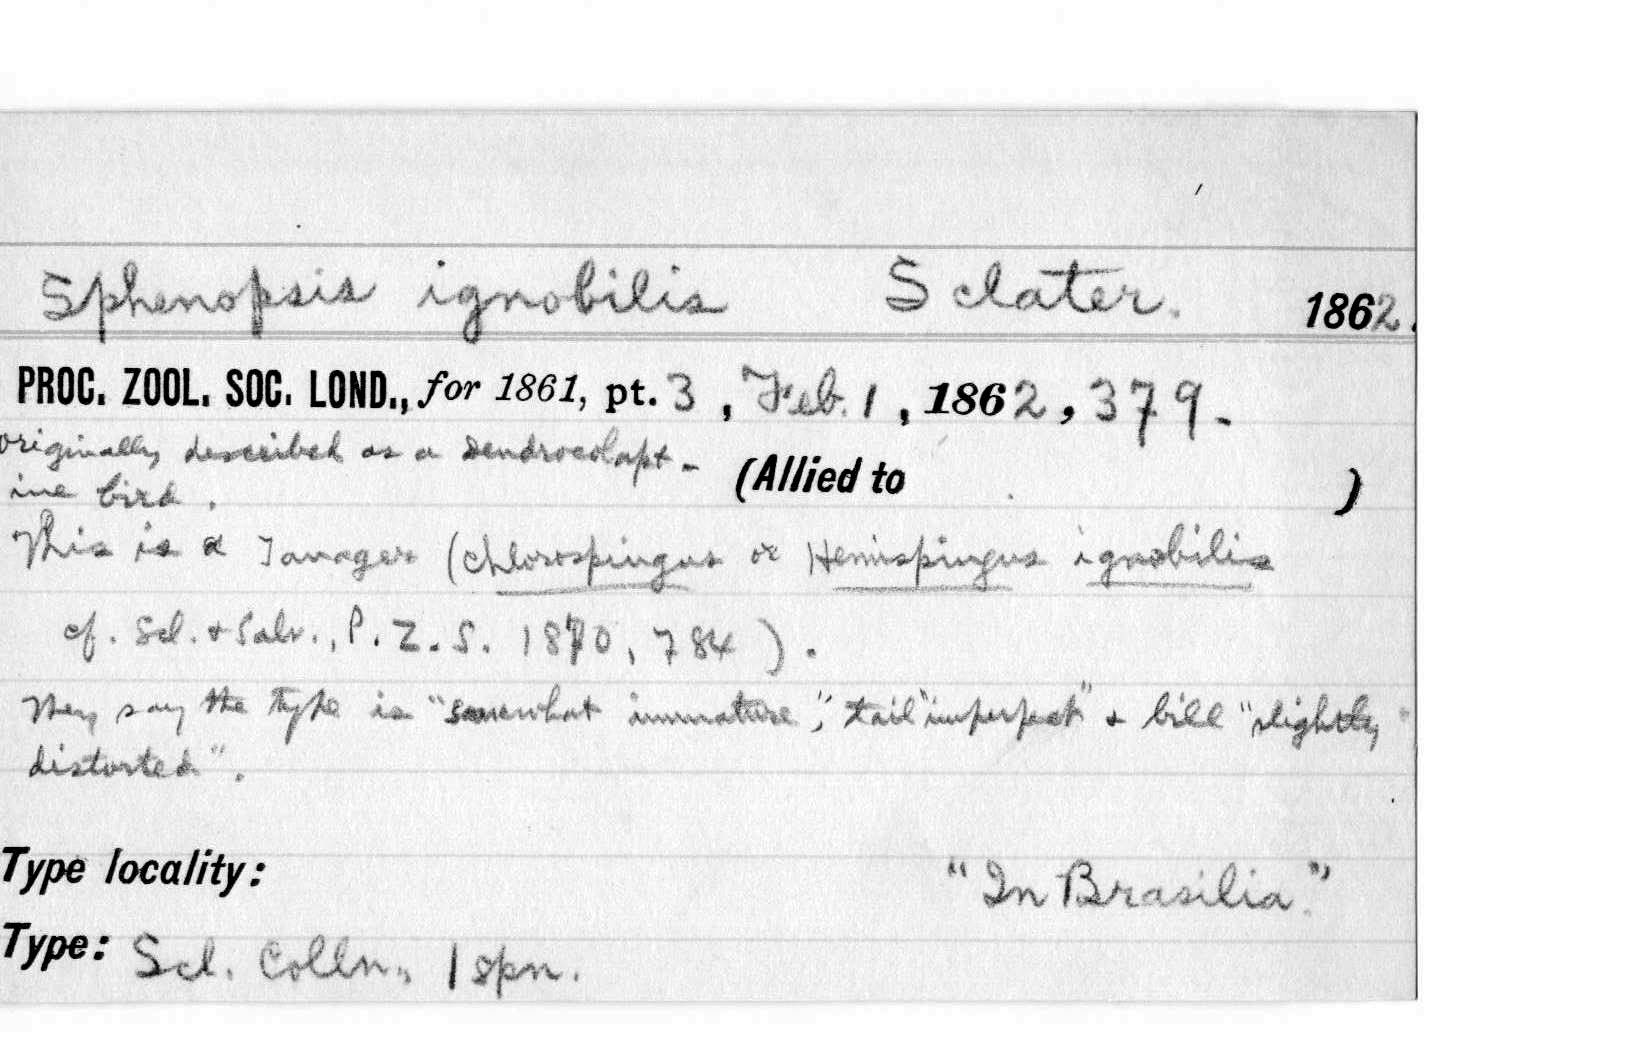 Sphenopsis ignobilis Sclater. 1862.
PROC. ZOOL. SOC. LOND., for 1861, pt. 3, Feb. 1, 1862, 379.
originally described as a Dendrocolapt-
ine bird. (Allied to )
This is a Tanager (Chlorospingus or Hemispingus ignobilis
cf. Scl. + Salv., P. Z. S. 1870, 784).
They say the type is "somewhat immature", tail "imperfect" + bill "slightly
distorted".
Type locality: "In Brasilia."
Type: Scl. Colln., 1 spn.